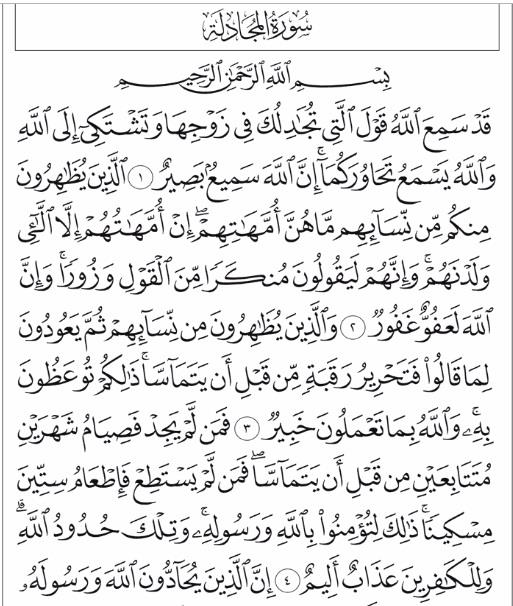 سُورَةُ المُجَادلَةِ
بِسْمِ ٱللَّهِ ٱلرَّحْمَٰنِ ٱلرَّحِيمِ
قَدْ سَمِعَ ٱللَّهُ قَوْلَ ٱلَّتِى تُجَٰدِلُكَ فِى زَوْجِهَا وَتَشْتَكِىٓ إِلَى ٱللَّهِ
وَٱللَّهُ يَسْمَعُ تَحَاوُرَكُمَآ ۚ إِنَّ ٱللَّهَ سَمِيعٌۢ بَصِيرٌ ١ ٱلَّذِينَ يُظَٰهِرُونَ
مِنكُم مِّن نِّسَآئِهِم مَّا هُنَّ أُمَّهَٰتِهِمْ ۖ إِنْ أُمَّهَٰتُهُمْ إِلَّا ٱلَّٰٓـِٔى
وَلَدْنَهُمْ ۚ وَإِنَّهُمْ لَيَقُولُونَ مُنكَرًا مِّنَ ٱلْقَوْلِ وَزُورًا ۚ وَإِنَّ
ٱللَّهَ لَعَفُوٌّ غَفُورٌ ٢ وَٱلَّذِينَ يُظَٰهِرُونَ مِن نِّسَآئِهِمْ ثُمَّ يَعُودُونَ
لِمَا قَالُوا۟ فَتَحْرِيرُ رَقَبَةٍ مِّن قَبْلِ أَن يَتَمَآسَّا ۚ ذَٰلِكُمْ تُوعَظُونَ
بِهِۦ ۚ وَٱللَّهُ بِمَا تَعْمَلُونَ خَبِيرٌ ٣ فَمَن لَّمْ يَجِدْ فَصِيَامُ شَهْرَيْنِ
مُتَتَابِعَيْنِ مِن قَبْلِ أَن يَتَمَآسَّا ۖ فَمَن لَّمْ يَسْتَطِعْ فَإِطْعَامُ سِتِّينَ
مِسْكِينًا ۚ ذَٰلِكَ لِتُؤْمِنُوا۟ بِٱللَّهِ وَرَسُولِهِۦ ۚ وَتِلْكَ حُدُودُ ٱللَّهِ ۗ
وَلِلْكَٰفِرِينَ عَذَابٌ أَلِيمٌ ٤ إِنَّ ٱلَّذِينَ يُحَآدُّونَ ٱللَّهَ وَرَسُولَهُۥ